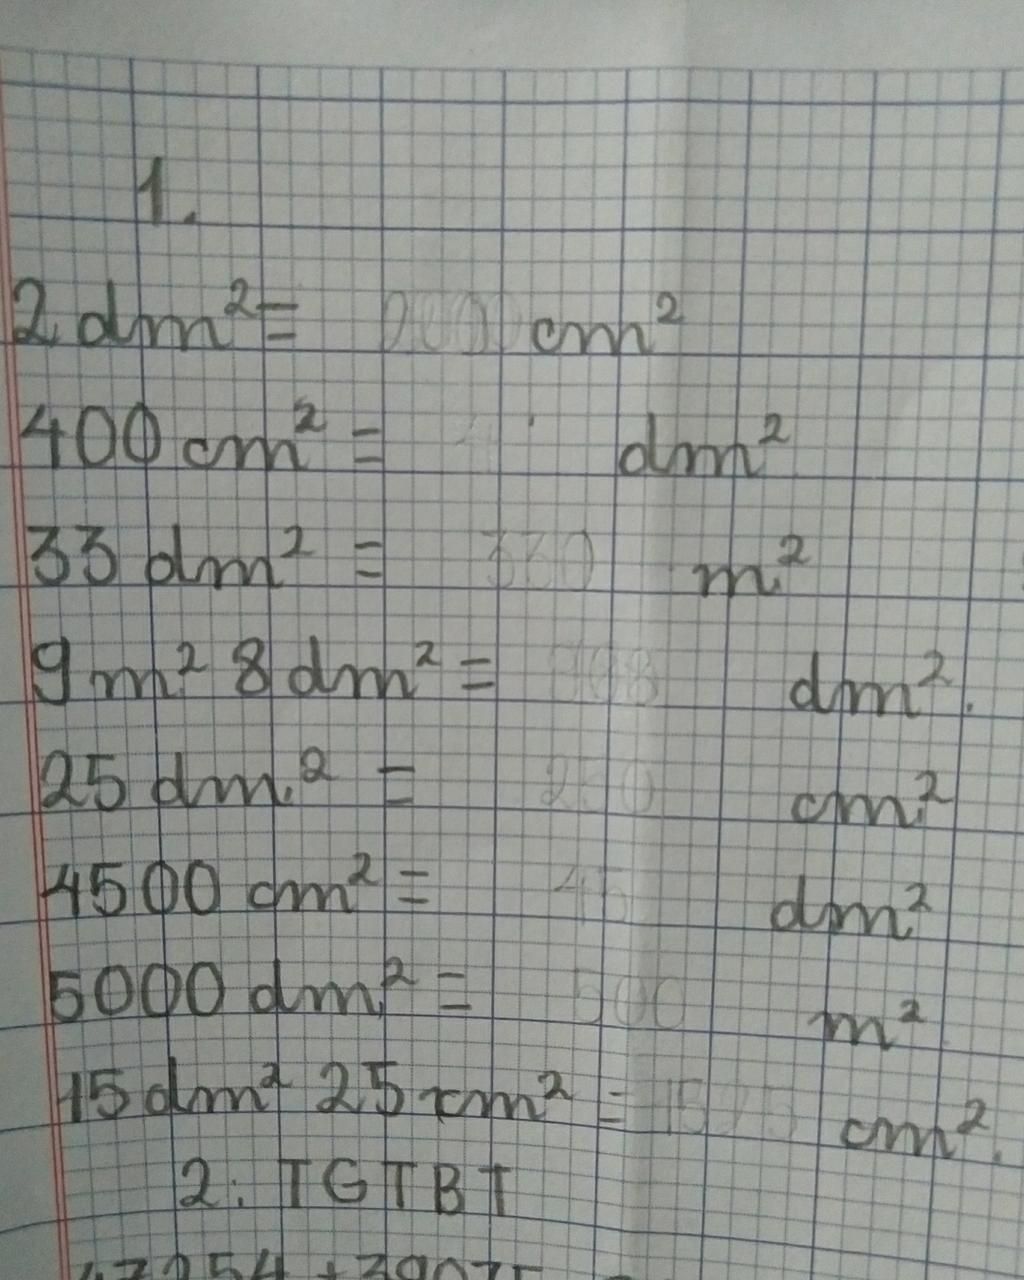 1.
2 dm² = 200 cm²
400 cm² = dm²
33 dm² = 330 m²
9 m² 8 dm² = 908 dm².
25 dm² = 250 cm²
4500 cm² = 45 dm²
5000 dm² = 500 m²
15 dm² 25 cm² = cm².
2. TGTBT